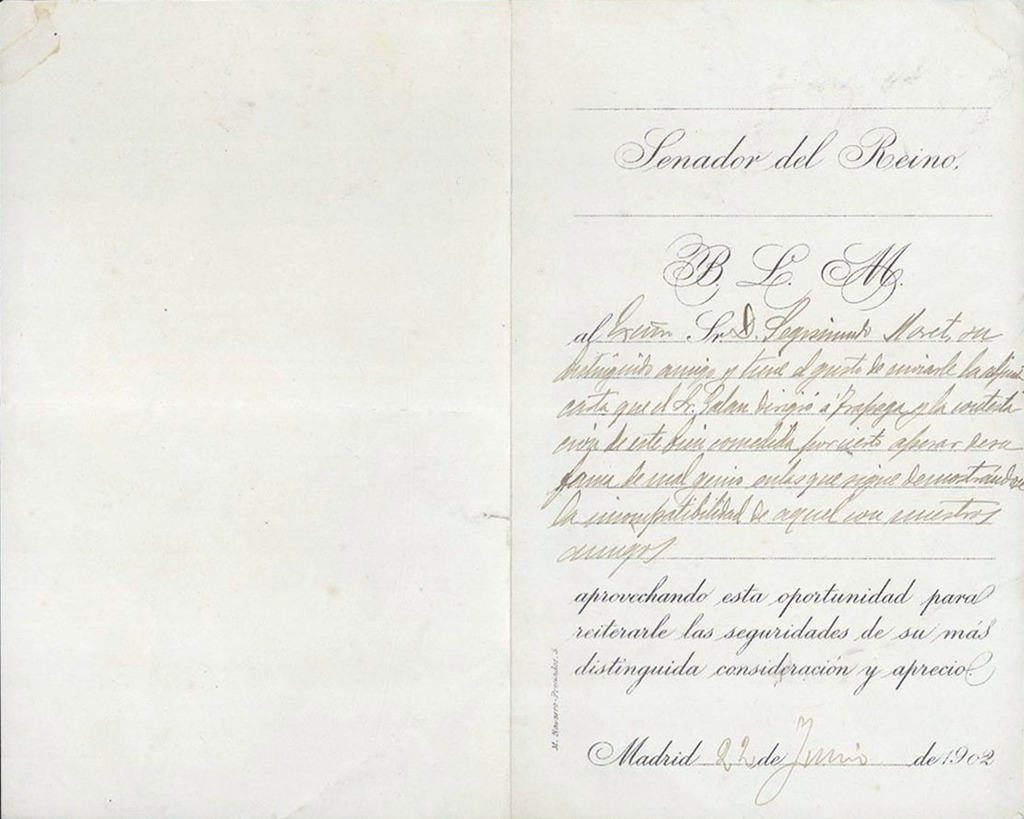 Senador del Reino,
B. L. M.
al Excmo Sr. D. Segismundo Moret, su
distinguido amigo y tiene el gusto de enviarle la adjunta
carta que el Sr. Galan dirigió á Trapaga y la contesta
ción de este bien comedida por cierto apesar de su
fama de mal genio en las que sigue demostrandose
la incompatibilidad de aquel con nuestros
amigos
aprovechando esta oportunidad para
reiterarle las seguridades de su más
distinguida consideración y aprecio.
Madrid 22 de Junio de 1902
M. Navarro-Preciados, 5.